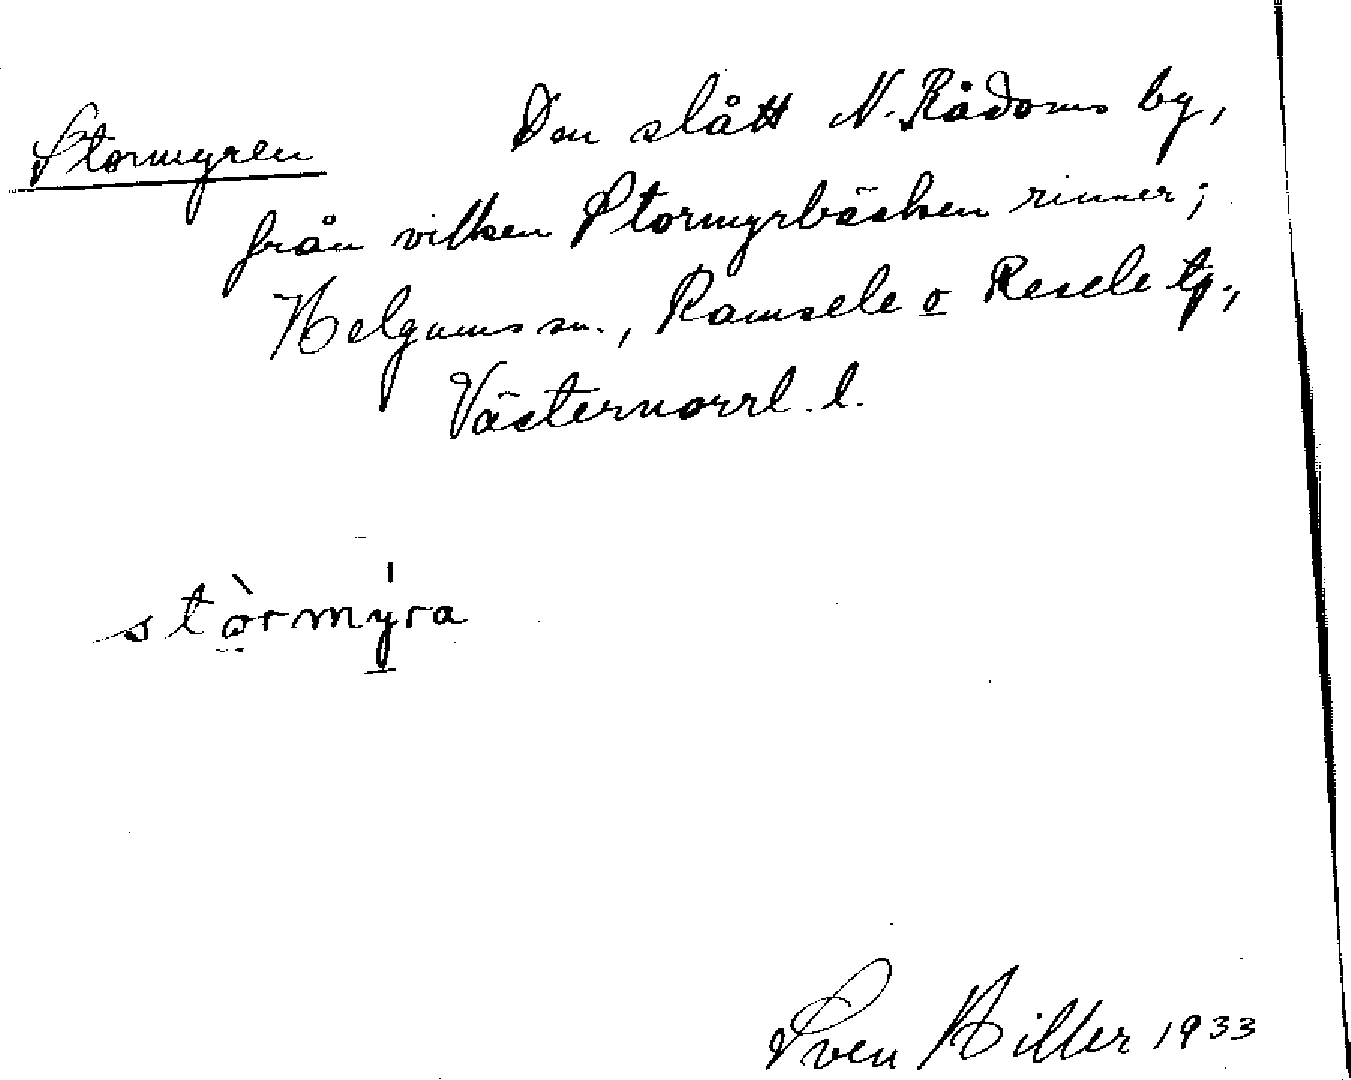 Stormyren Den slått N. Rådoms by,
från vilken Stormyrbäcken rinner;
Helgums sn., Ramsele o Resele tg.,
Västernorrl. l.
stòrmýra
Sven Hiller 1933